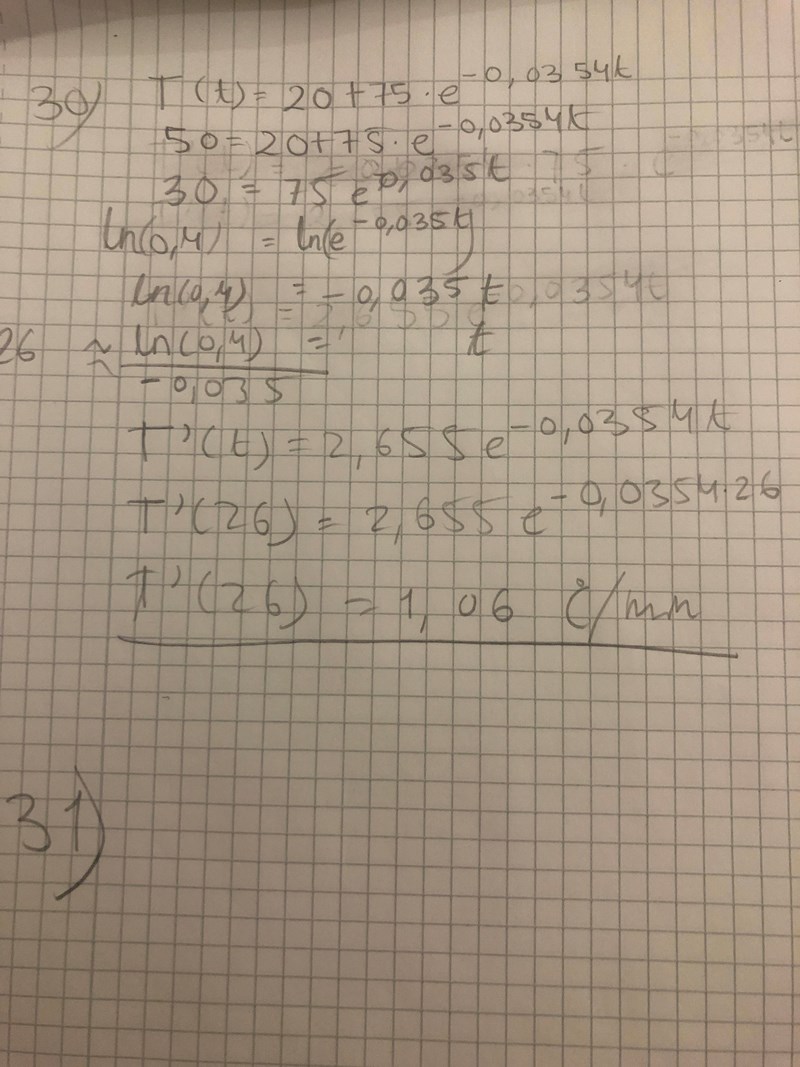 30) T(t) = 20+75·e^-0,0354t
50 = 20+75·e^-0,0354t
30 = 75 e^0,035t
ln(0,4) = ln(e^-0,035t)
ln(0,4) = -0,035 t
26 ≈ ln(0,4)/-0,035 = t
T'(t) = 2,655 e^-0,0354t
T'(26) = 2,655 e^-0,0354·26
T'(26) = 1,06 °C/min
31)